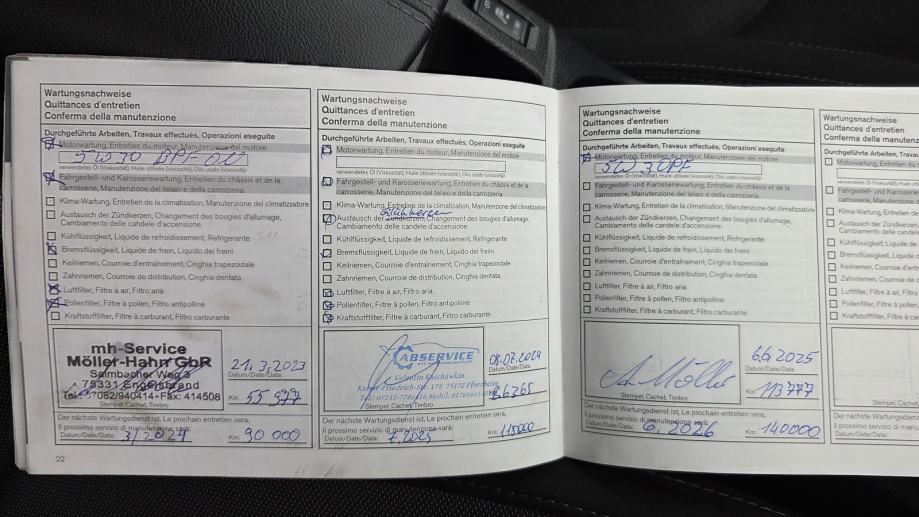 Wartungsnachweise
Quittances d'entretien
Conferma della manutenzione
Durchgeführte Arbeiten, Travaux effectués, Operazioni eseguite
Motorwartung, Entretien du moteur, Manutenzione del motore
5W30
verwendetes Öl (Viskosität), Huile utilisée (viscosité), Olio usato (viscosità)
Fahrgestell- und Karosseriewartung, Entretien du châssis et de la
carrosserie, Manutenzione del telaio e della carrozzeria
Klima-Wartung, Entretien de la climatisation, Manutenzione del climatizzatore
Austausch der Zündkerzen, Changement des bougies d'allumage,
Cambiamento delle candele d'accensione
Kühlflüssigkeit, Liquide de refroidissement, Refrigerante
Bremsflüssigkeit, Liquide de frein, Liquido dei freini
Keilriemen, Courroie d'entraînement, Cinghia trapezoidale
Zahnriemen, Courroie de distribution, Cinghia dentata
Luftfilter, Filtre à air, Filtro aria
Pollenfilter, Filtre à pollen, Filtro antipolline
Kraftstofffilter, Filtre à carburant, Filtro carburante
mh-Service
Möller-Hahn GbR
Salmbacher Weg 3
75331 Engelsbrand
Tel. 07082/940414 · Fax: 414508
Stempel, Cachet, Timbro
21.3.2023
Datum/Date/Data
Km: 55 977
Der nächste Wartungsdienst ist, Le prochain entretien sera,
Il prossimo servizio di manutenzione sarà:
Datum/Date/Data: 3/2024 Km: 90 000
22
Wartungsnachweise
Quittances d'entretien
Conferma della manutenzione
Durchgeführte Arbeiten, Travaux effectués, Operazioni eseguite
Motorwartung, Entretien du moteur, Manutenzione del motore
verwendetes Öl (Viskosität), Huile utilisée (viscosité), Olio usato (viscosità)
Fahrgestell- und Karosseriewartung, Entretien du châssis et de la
carrosserie, Manutenzione del telaio e della carrozzeria
Klima-Wartung, Entretien de la climatisation, Manutenzione del climatizzatore
Glühkerzen
Austausch der Zündkerzen, Changement des bougies d'allumage,
Cambiamento delle candele d'accensione
Kühlflüssigkeit, Liquide de refroidissement, Refrigerante
Bremsflüssigkeit, Liquide de frein, Liquido dei freini
Keilriemen, Courroie d'entraînement, Cinghia trapezoidale
Zahnriemen, Courroie de distribution, Cinghia dentata
Luftfilter, Filtre à air, Filtro aria
Pollenfilter, Filtre à pollen, Filtro antipolline
Kraftstofffilter, Filtre à carburant, Filtro carburante
ABSERVICE
Valentin Kaschawkin
75172 Pforzheim
Stempel, Cachet, Timbro
08.07.2024
Datum/Date/Data
Der nächste Wartungsdienst ist, Le prochain entretien sera,
Il prossimo servizio di manutenzione sarà:
Datum/Date/Data: 7.2025 Km: 115000
Wartungsnachweise
Quittances d'entretien
Conferma della manutenzione
Durchgeführte Arbeiten, Travaux effectués, Operazioni eseguite
Motorwartung, Entretien du moteur, Manutenzione del motore
5W30
verwendetes Öl (Viskosität), Huile utilisée (viscosité), Olio usato (viscosità)
Fahrgestell- und Karosseriewartung, Entretien du châssis et de la
carrosserie, Manutenzione del telaio e della carrozzeria
Klima-Wartung, Entretien de la climatisation, Manutenzione del climatizzatore
Austausch der Zündkerzen, Changement des bougies d'allumage,
Cambiamento delle candele d'accensione
Kühlflüssigkeit, Liquide de refroidissement, Refrigerante
Bremsflüssigkeit, Liquide de frein, Liquido dei freini
Keilriemen, Courroie d'entraînement, Cinghia trapezoidale
Zahnriemen, Courroie de distribution, Cinghia dentata
Luftfilter, Filtre à air, Filtro aria
Pollenfilter, Filtre à pollen, Filtro antipolline
Kraftstofffilter, Filtre à carburant, Filtro carburante
A. Möller
Stempel, Cachet, Timbro
6.6.2025
Datum/Date/Data
Km: 113 777
Der nächste Wartungsdienst ist, Le prochain entretien sera,
Il prossimo servizio di manutenzione sarà:
Datum/Date/Data: 6.2026 Km: 140000
Wartungsnachweise
Quittances d'entretien
Conferma della manutenzione
Durchgeführte Arbeiten, Travaux
Motorwartung, Entretien du moteur
verwendetes Öl (Viskosität), Huile
Fahrgestell- und Karosseriewartung
carrosserie, Manutenzione del
Klima-Wartung, Entretien de la
Austausch der Zündkerzen,
Cambiamento delle candele
Kühlflüssigkeit, Liquide de
Bremsflüssigkeit, Liquide de
Keilriemen, Courroie
Zahnriemen, Courroie de
Luftfilter, Filtre à air,
Pollenfilter, Filtre à pollen
Kraftstofffilter, Filtre à
Stempel, Cachet, Timbro
Der nächste Wartungsdienst
Il prossimo servizio di
Datum/Date/Data: